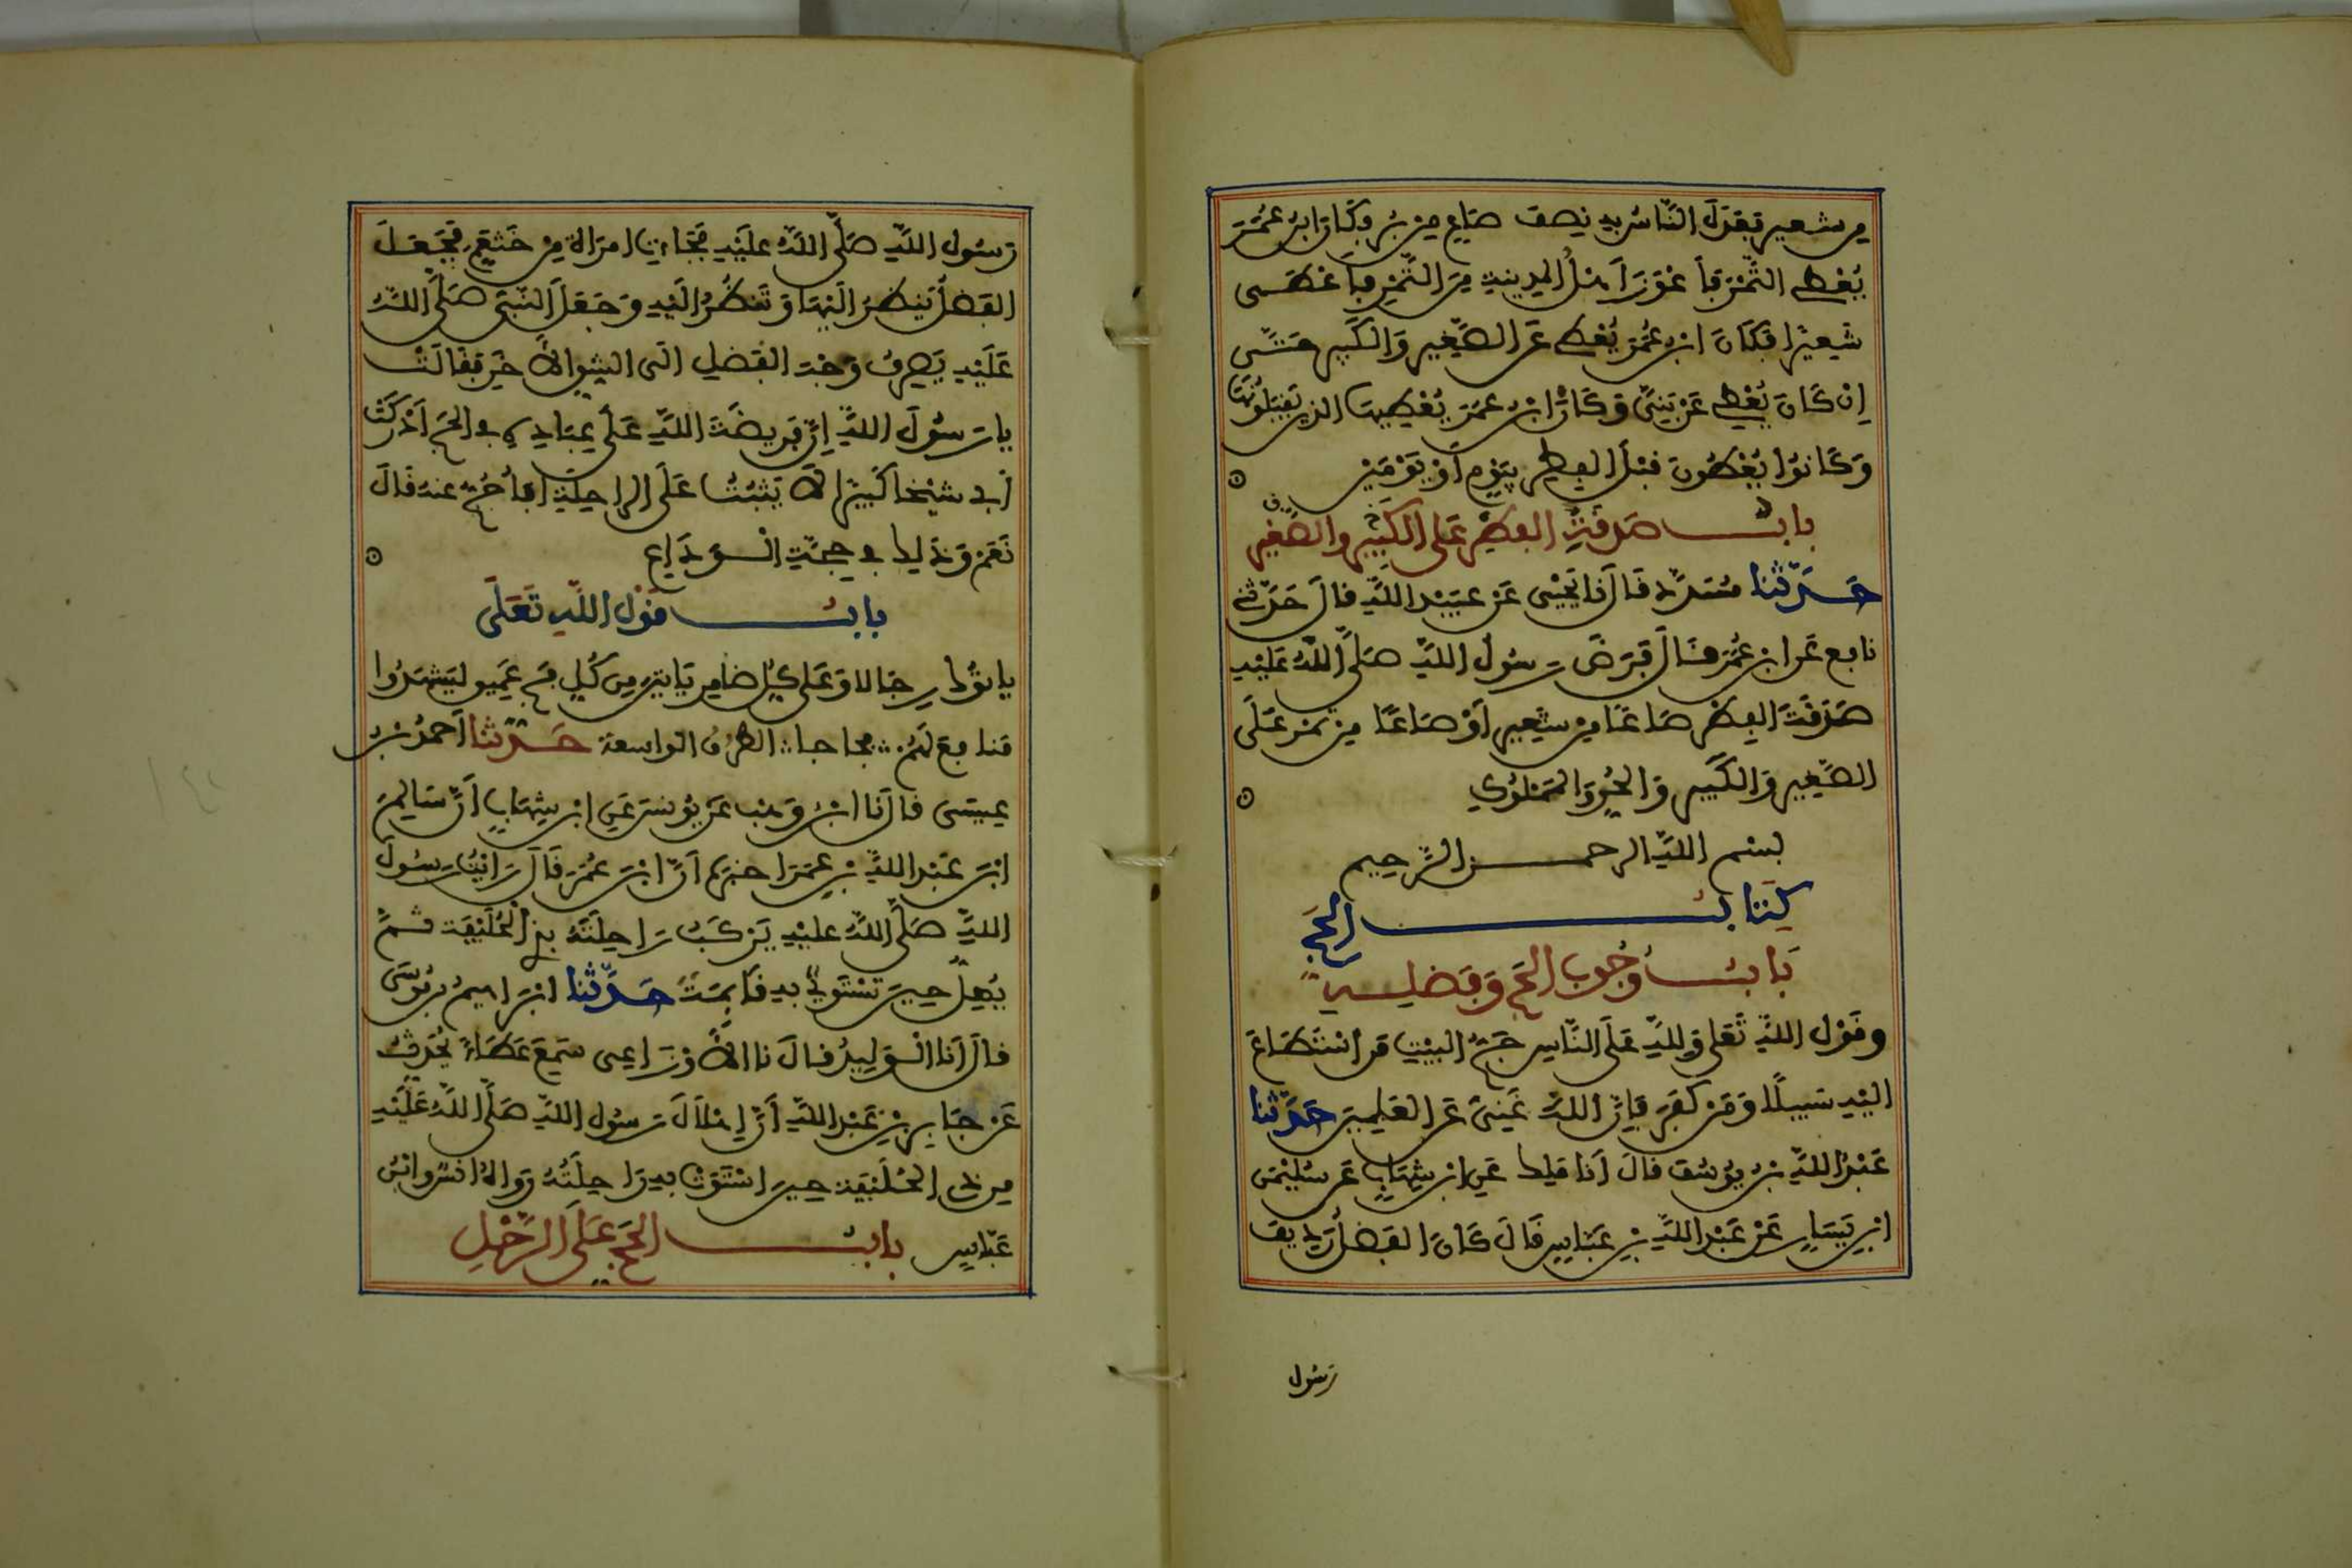 من شعير فعدل الناس به نصف صاع من بر وكان ابن عمر
يعطي التمر فأعوز أهل المدينة من التمر فأعطى
شعيرا فكان ابن عمر يعطي عن الصغير والكبير حتى
إن كان يعطي عن بني وكان ابن عمر يعطيها الذين يقبلونها
وكانوا يعطون قبل الفطر بيوم أو يومين
باب صدقة الفطر على الكبير والصغير
حدثنا مسدد قال نا يحيى عن عبيد الله قال حدثني
نافع عن ابن عمر قال فرض رسول الله صلى الله عليه
صدقة الفطر صاعا من شعير أو صاعا من تمر على
الصغير والكبير والحر والمملوك
بسم الله الرحمن الرحيم
كتاب الحج
باب وجوب الحج وفضله
وقول الله تعلى ولله على الناس حج البيت من استطاع
إليه سبيلا ومن كفر فإن الله غني عن العلمين حدثنا
عبد الله بن يوسف قال أنا ملك عن ابن شهاب عن سليمن
ابن يسار عن عبد الله بن عباس قال كان الفضل رديف
رسول
رسول الله صلى الله عليه فجاءت امراة من خثعم فجعل
الفضل ينظر اليها وتنظر اليه وجعل النبي صلى الله
عليه يصرف وجه الفضل الى الشق الاخر فقالت
يا رسول الله إن فريضة الله على عباده في الحج أدركت
أبي شيخا كبيرا لا يثبت على الراحلة أفأحج عنه قال
نعم وذلك في حجة الوداع
باب قول الله تعلى
ياتوك رجالا وعلى كل ضامر ياتين من كل فج عميق ليشهدوا
منافع لهم فجاجا الطرق الواسعة حدثنا أحمد بن
عيسى قال نا ابن وهب عن يونس عن ابن شهاب أن سالم
ابن عبد الله بن عمر اخبره أن ابن عمر قال رايت رسول
الله صلى الله عليه يركب راحلته بذي الحليفة ثم
يهل حين تستوي به قائمة حدثنا ابراهيم بن موسى
قال أنا الوليد قال نا الاوزاعي سمع عطاء يحدث
عن جابر بن عبد الله أن إهلال رسول الله صلى الله عليه
من ذي الحليفة حين استوت به راحلته رواه انس وابن
عباس باب الحج على الرحل